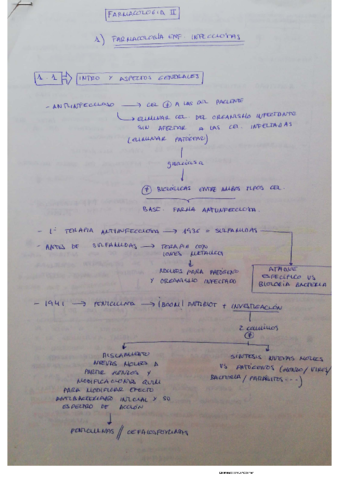 FARMACOLOGIA II
1) FARMACOLOGÍA ENF. INFECCIOSAS
1.1 INTRO Y ASPECTOS GENERALES
- ANTIINFECCIOSO → CEL ≠ A LAS DEL PACIENTE
→ ELIMINAR CEL DEL ORGANISMO INFECTANTE
SIN AFECTAR A LAS CEL INFECTADAS
(ELIMINAR PATÓGENO)
≠ BIOLÓGICAS ENTRE AMBOS TIPOS CEL.
BASE FARMA ANTIINFECCIOSA.
- 1ª TERAPIA ANTIINFECCIOSA → 1936 = SULFAMIDAS
- ANTES DE SULFAMIDAS → TERAPIA CON
IONES METÁLICOS
NOCIVOS PARA PATÓGENO
Y ORGANISMO INFECTADO
ATAQUE
ESPECÍFICO VS
BIOLOGIA BACTERIA
- 1941 → PENICILINA → ¡BOOM! ANTIBIOT + INVESTIGACIÓN
2 CAMINOS
NUEVAS MOLEC A
PARTIR
MODIFICACIONES QUÍM
PARA MODIFICAR EFECTO
ANTIBACTERIANO INICIAL Y SU
ESPECTRO DE ACCIÓN
SÍNTESIS NUEVAS MOLEC
VS PATÓGENOS (HONGO/VIRUS/
BACTERIA/PARÁSITOS...)
PENICILINAS // CEFALOSPORINAS